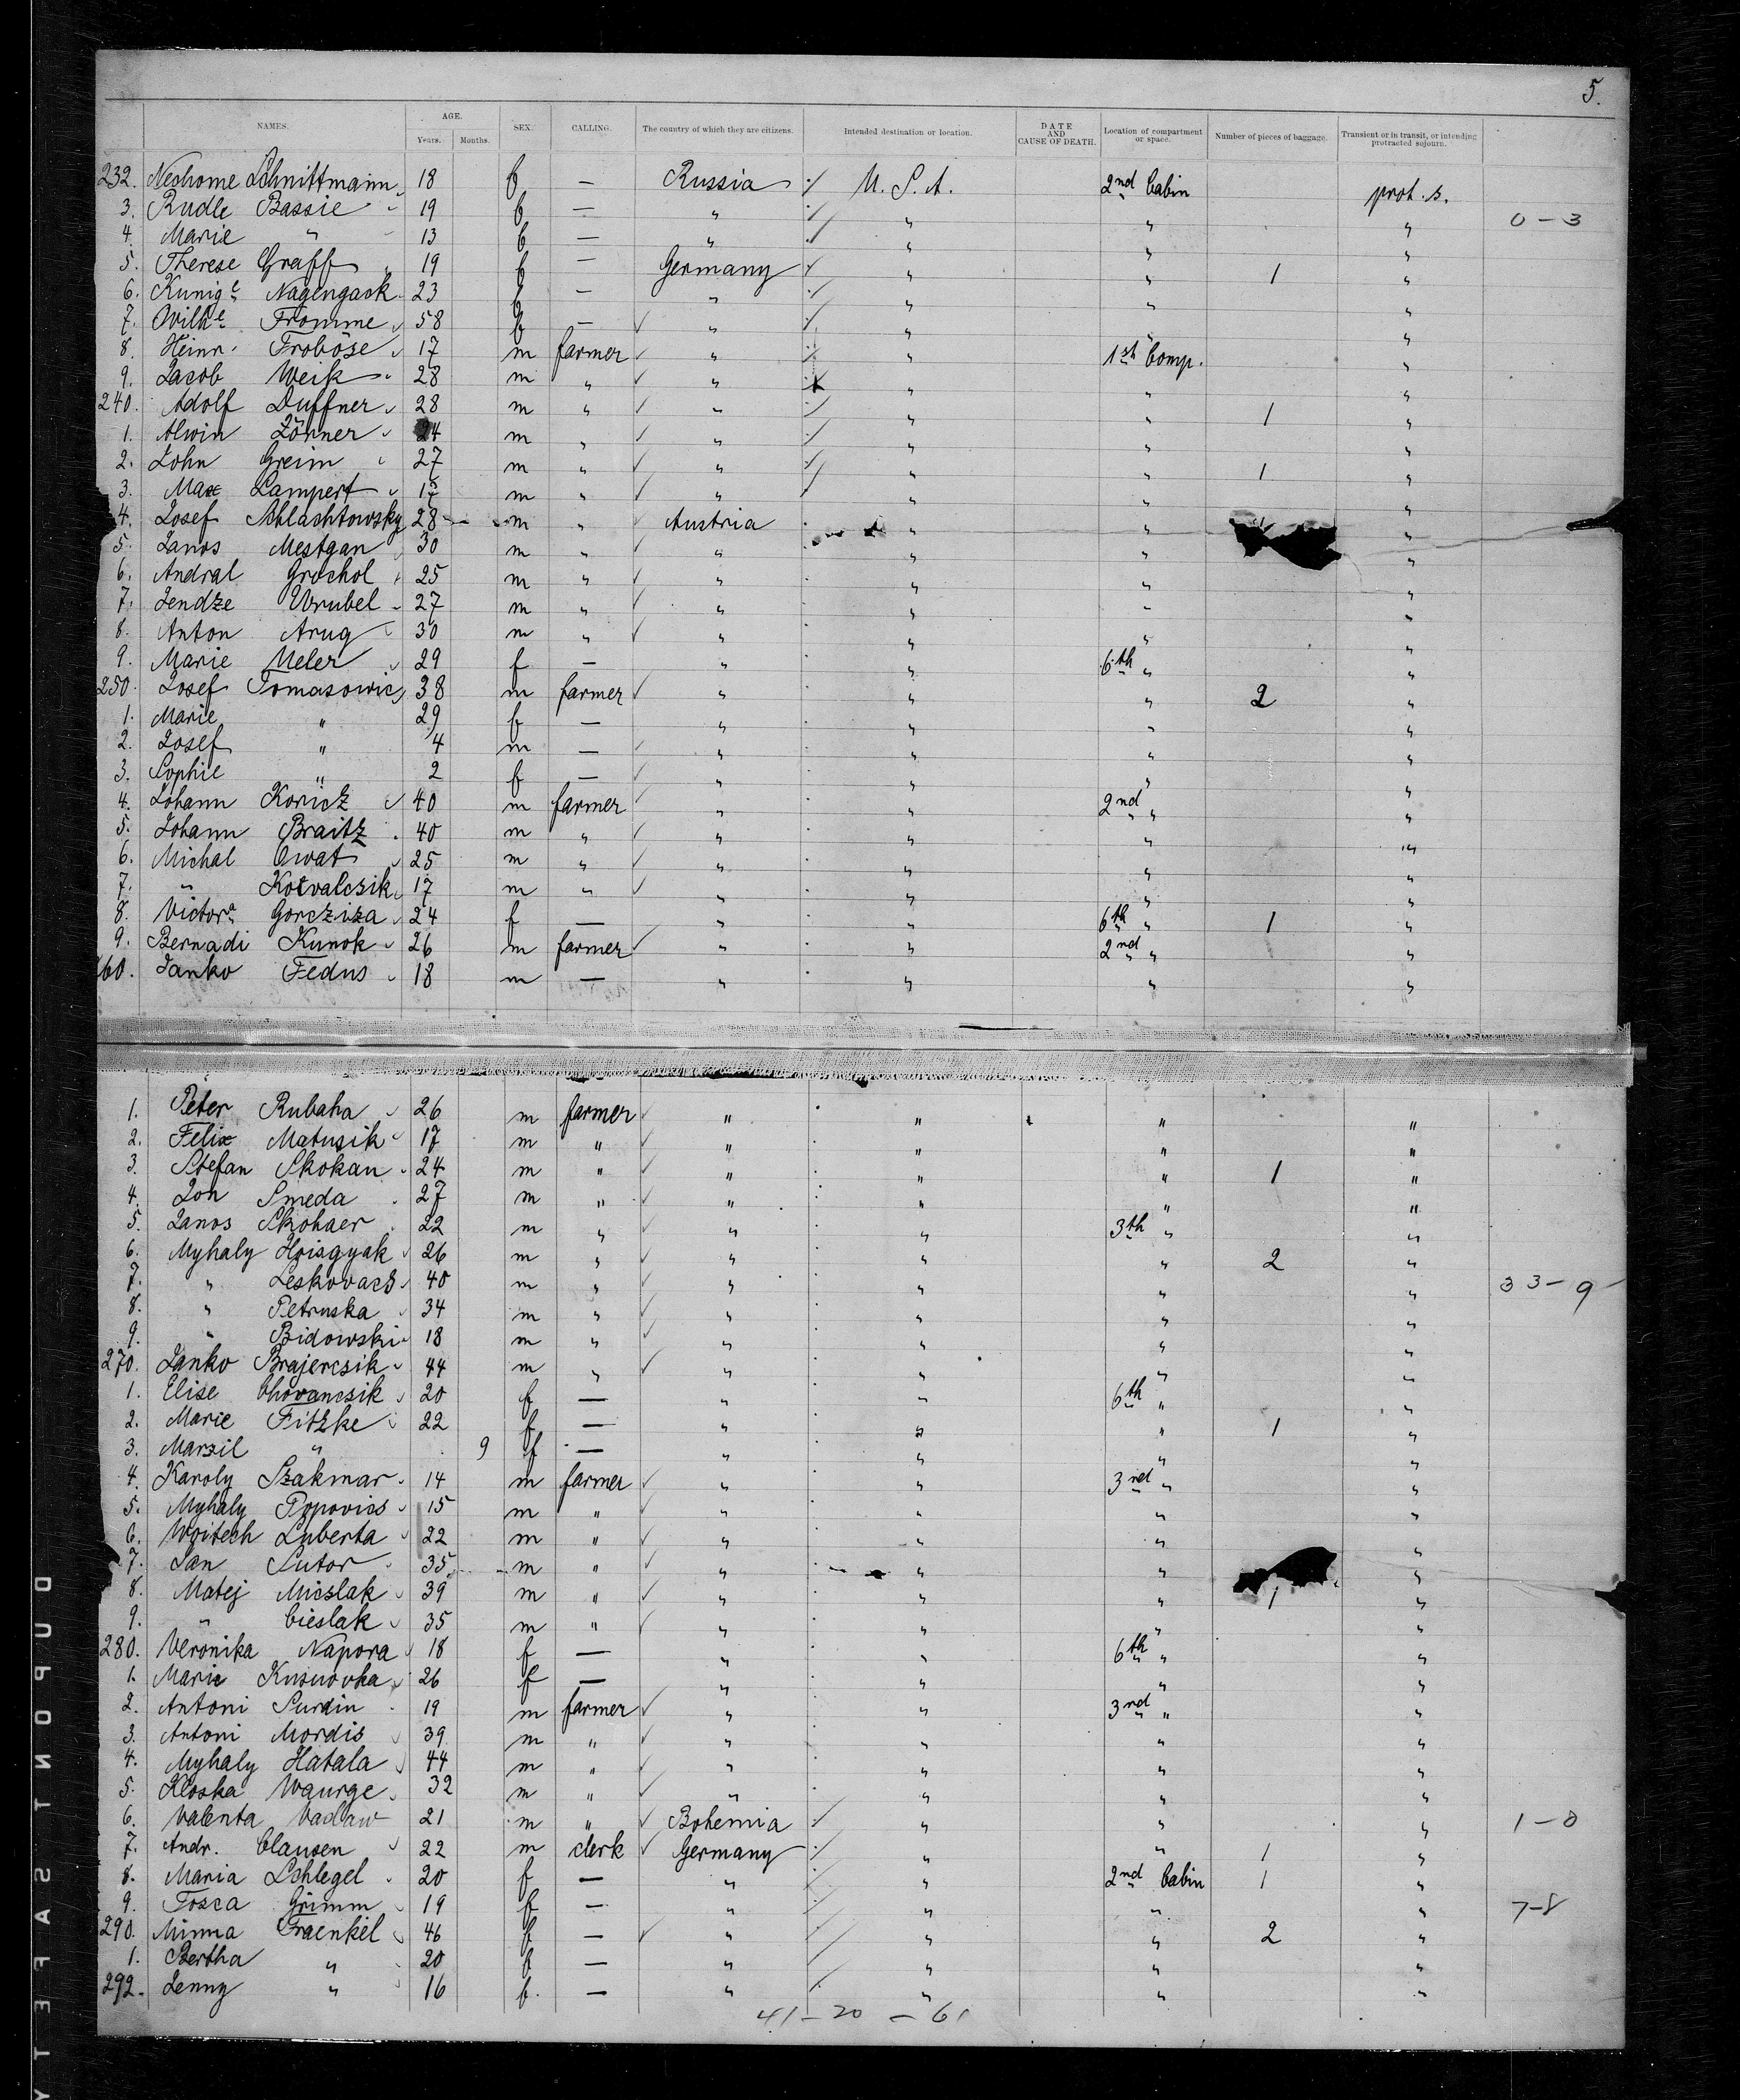 5.
NAMES. AGE. Years. Months. SEX. CALLING. The country of which they are citizens. Intended destination or location. DATE AND CAUSE OF DEATH. Location of compartment or space. Number of pieces of baggage. Transient or in transit, or intending protracted sojourn.
232. Nechome Schnittmann 18 f — Russia U. S. A. 2nd Cabin prot. s.
3. Rudle Bassie 19 f — " " " " 0 – 3
4. Marie " 13 f — " " " "
5. Therese Graff 19 f — Germany " " 1 "
6. Kunig.e Nagengack 23 f — " " " "
7. Wilh.e Fromme 58 f — " " " "
8. Heinr. Froböse 17 m farmer " " 1st Comp. "
9. Jacob Weik 28 m " " " " "
240. Adolf Duffner 28 m " " " " 1 "
1. Alwin Zörner 24 m " " " " "
2. John Greim 27 m " " " " 1 "
3. Max Lampert 17 m " " " " "
4. Josef Schlachtowsky 28 m " Austria " " "
5. Janos Mestgan 30 m " " " " "
6. Andral Grochol 25 m " " " " "
7. Jendze Wrubel 27 m " " " " "
8. Anton Arug 30 m " " " " "
9. Marie Meler 29 f — " " 6th " "
250. Josef Tomasowic 38 m farmer " " " 2 "
1. Marie " 29 f — " " " "
2. Josef " 4 m — " " " "
3. Sophie " 2 f — " " " "
4. Johann Koricz 40 m farmer " " 2nd " "
5. Johann Braitz 40 m " " " " "
6. Michal Cwat 25 m " " " " "
7. " Kotvalczik 17 m " " " " "
8. Victor.a Gorcziza 24 f — " " 6th " 1 "
9. Bernadi Kunok 26 m farmer " " 2nd " "
60. Janko Fedus 18 m — " " " "
1. Peter Rubaha 26 m farmer " " " "
2. Felix Matusik 17 m " " " " "
3. Stefan Skokan 24 m " " " " 1 "
4. Jon Smeda 27 m " " " " "
5. Janos Skohaer 22 m " " " 3th " "
6. Myhaly Hoisgyak 26 m " " " " 2 "
7. " Leskovacs 40 m " " " " " 33 – 9
8. " Petruska 34 m " " " " "
9. " Bidowski 18 m " " " " "
270. Janko Brajercsik 44 m " " " " "
1. Elise Chovancsik 20 f — " " 6th " "
2. Marie Fitzke 22 f — " " " 1 "
3. Marzil " 9 f — " " " "
4. Karoly Szakmar 14 m farmer " " 3rd " "
5. Myhaly Popovics 15 m " " " " "
6. Wojtech Luberta 22 m " " " " "
7. Jan Sutor 35 m " " " " "
8. Matej Micslak 39 m " " " " 1 "
9. " Cieslak 35 m " " " " "
280. Veronika Napora 18 f — " " 6th " "
1. Marie Kusnovka 26 f — " " " "
2. Antoni Surdin 19 m farmer " " 3rd " "
3. Antoni Mordis 39 m " " " " "
4. Myhaly Hatala 44 m " " " " "
5. Kloska Waurge 32 m " " " " "
6. Valenta Vaclaw 21 m " Bohemia " " " 1 – 0
7. Andr. Clausen 22 m clerk Germany " " 1 "
8. Maria Schlegel 20 f — " " 2nd Cabin 1 "
9. Tosca Grimm 19 f — " " " " 7–8
290. Minna Fraenkel 46 f — " " " 2 "
1. Bertha " 20 f — " " " "
292. Jenny " 16 f. — " " " "
41 – 20 – 61
DUPONT SAFETY